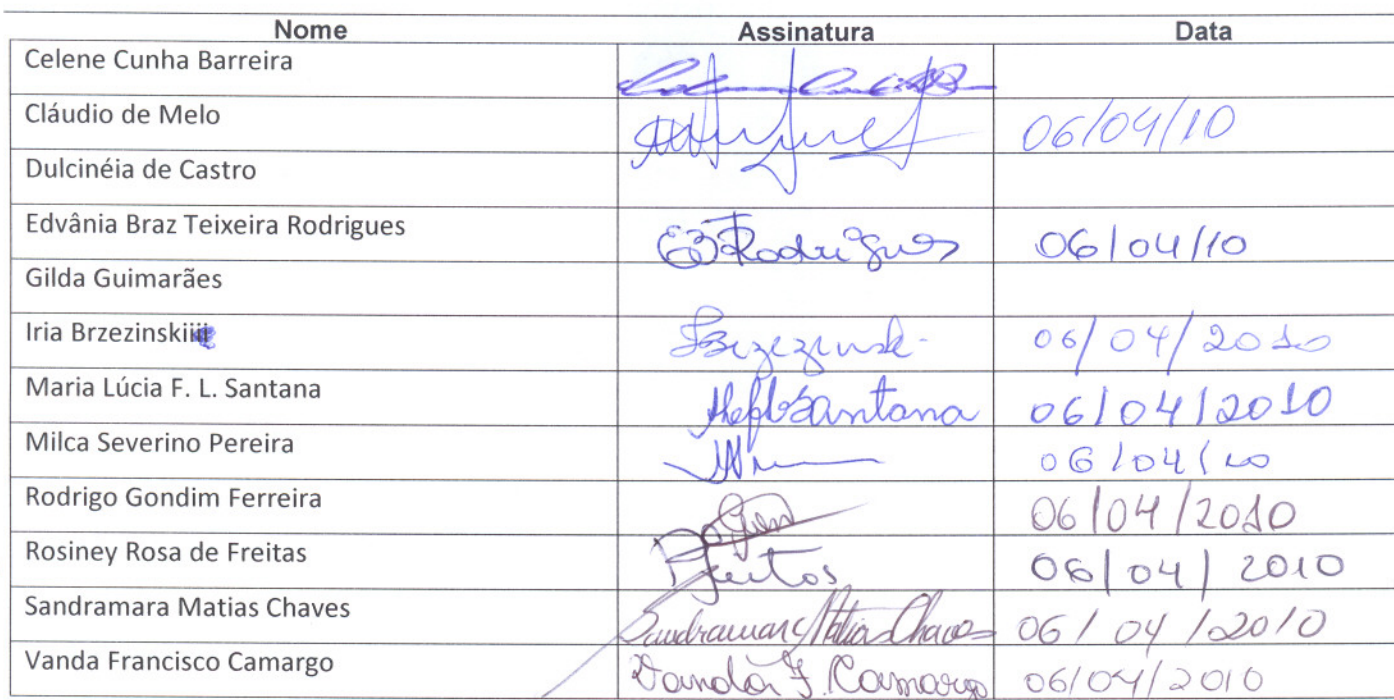 Nome Assinatura Data
Celene Cunha Barreira
Cláudio de Melo 06/04/10
Dulcinéia de Castro
Edvânia Braz Teixeira Rodrigues EBRodrigues 06/04/10
Gilda Guimarães
Iria Brzezinskiiii Brzezinski 06/04/2010
Maria Lúcia F. L. Santana Santana 06/04/2010
Milca Severino Pereira 06/04/10
Rodrigo Gondim Ferreira 06/04/2010
Rosiney Rosa de Freitas Freitas 06/04/2010
Sandramara Matias Chaves Sandramara Matias Chaves 06/04/2010
Vanda Francisco Camargo Vanda F. Camargo 06/04/2010